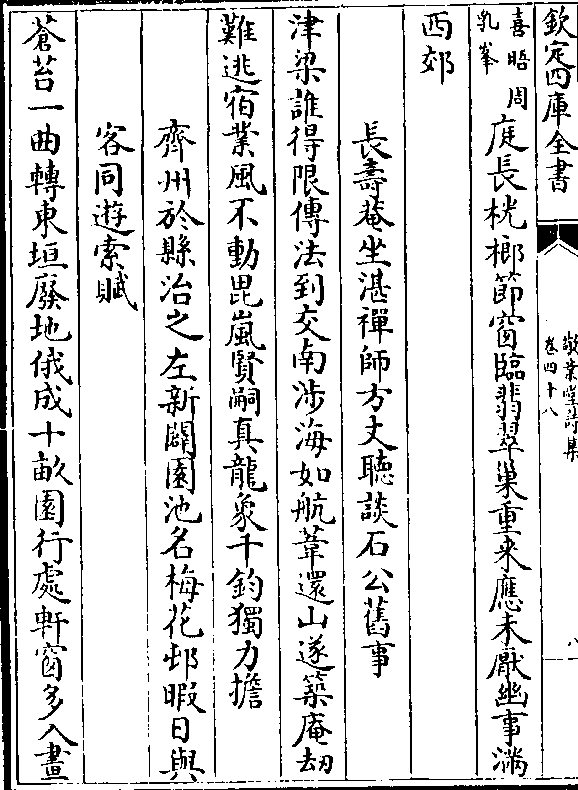 欽定四庫全書
敬業堂詩集
卷四十八
八
喜晤周
乳峯
庭長桄榔節窗臨翡翠巢重來應未厭幽事滿
西郊
長壽菴坐湛禪師方丈聽談石公舊事
津梁誰得限傳法到交南涉海如航葦還山遂築庵劫
難逃宿業風不動毘嵐賢嗣真龍象千鈞獨力擔
齊州於縣治之左新闢園池名梅花邨暇日與
客同遊索賦
蒼苔一曲轉東垣廢地俄成十畝園行處軒窗多入畫